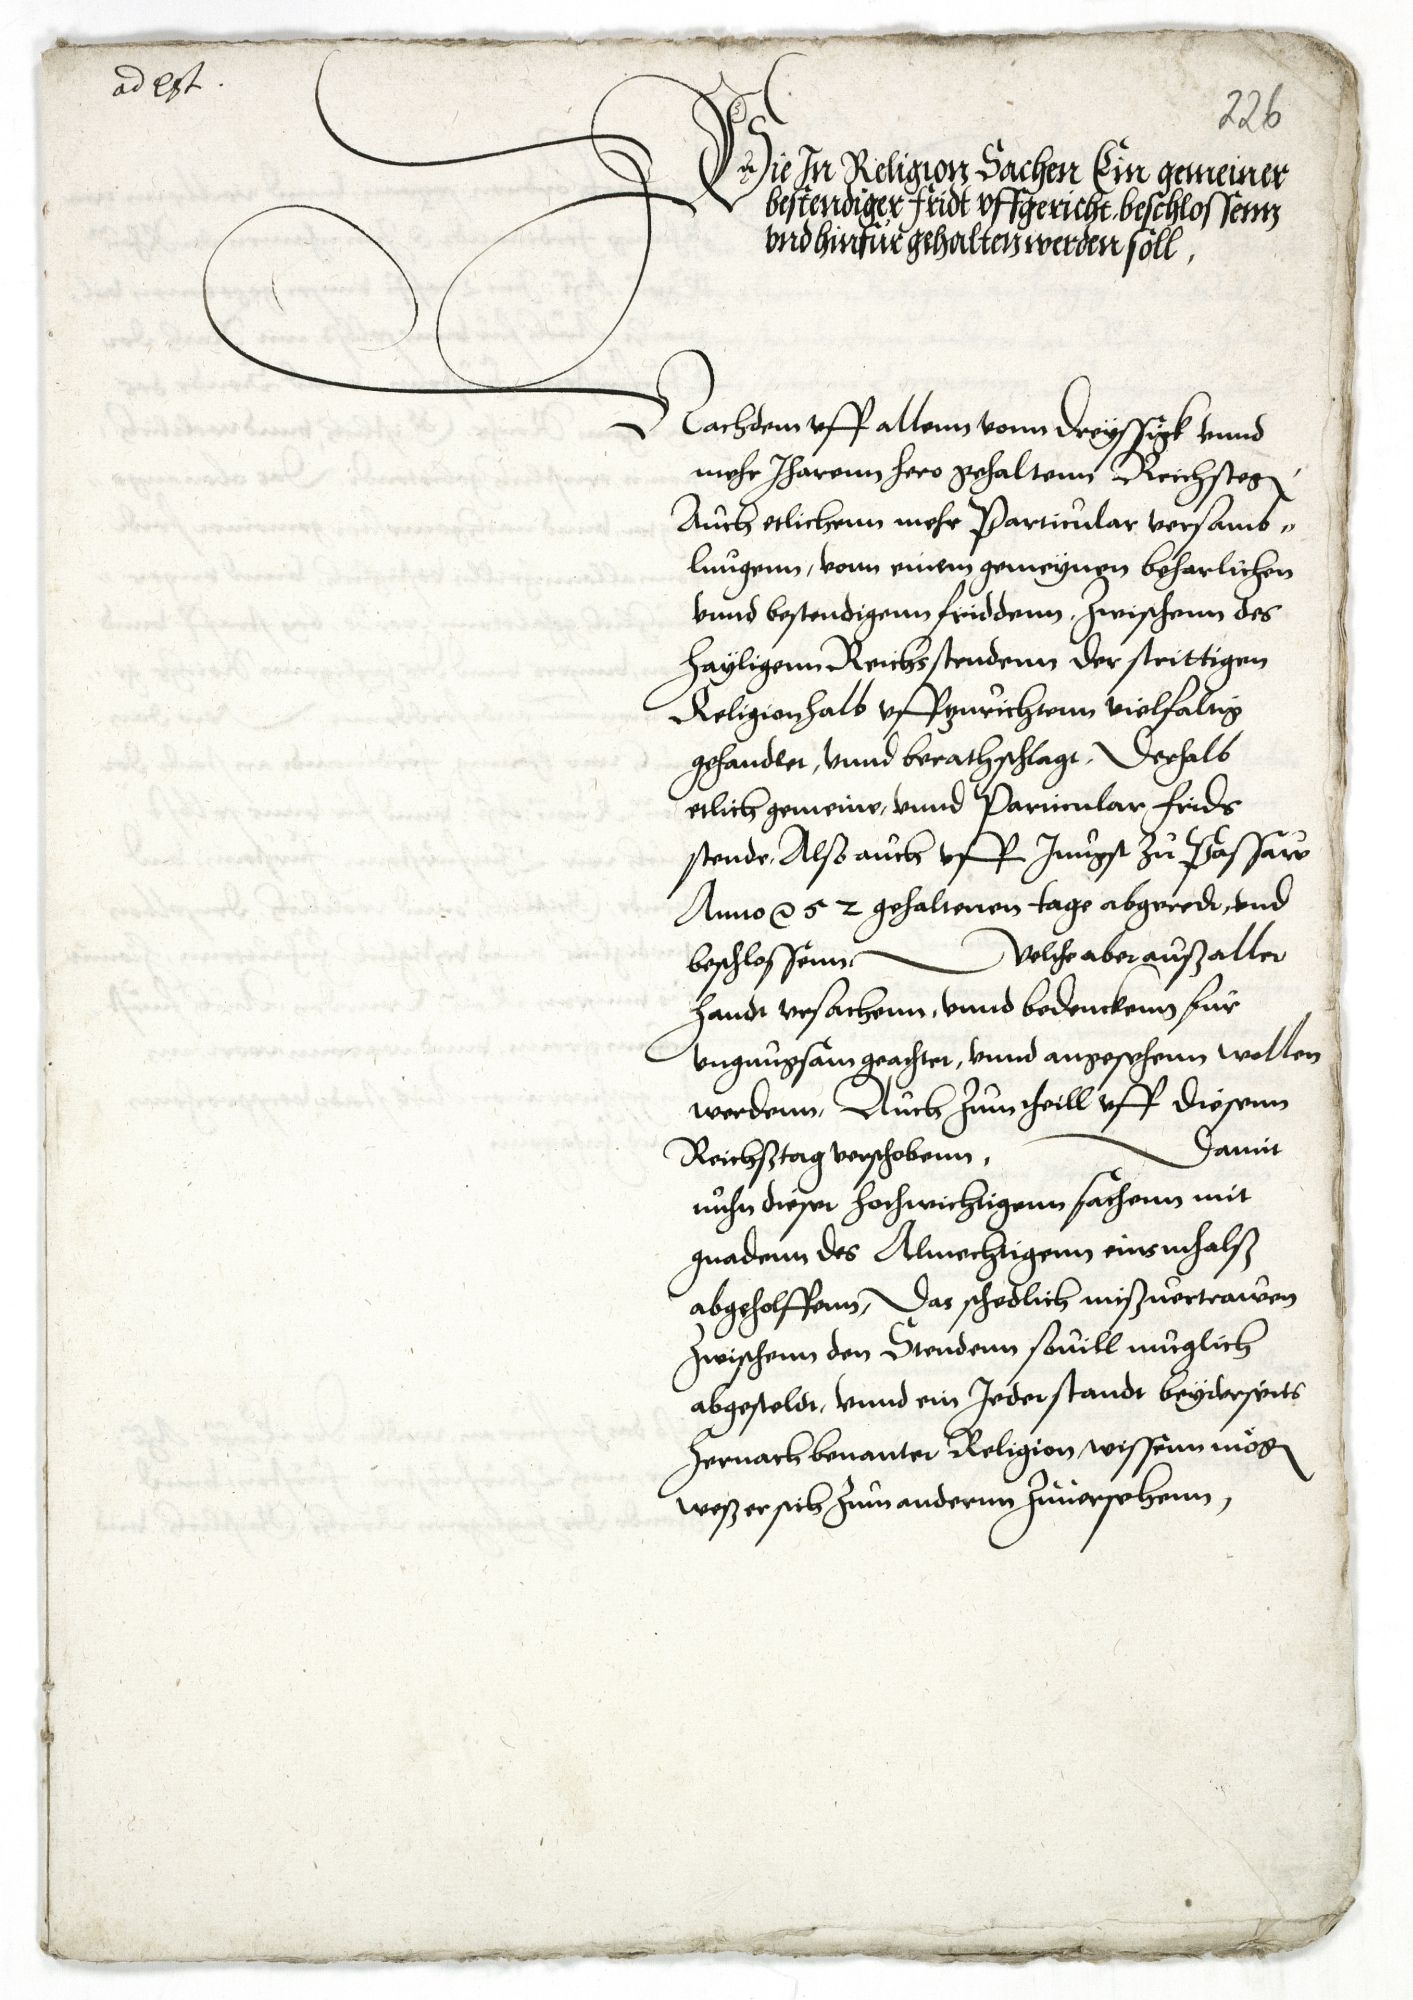 226
Wie In Religion Sachen Ein gemeiner
bestendiger fridt vffgericht, beschlossenn
vnd hinfür gehalten werden söll,
Nachdem vff allenn vonn dreyssigk vnnd
mehr Jharenn hero gehaltenn Reichsteg
Auch etlichenn mehr Particular versamb„
lungenn, vonn einem gemeynen beharlichen
vnnd bestendigenn friddenn, Zwischenn des
hayligenn Reichsstendenn der strittigen
Religion halb vffzurichtenn vielfaltig
gehandlet, vnnd berathschlagt, Derhalb
etlich gemeine, vnnd Particular frids
stende, Also auch vff Jungst zu Passaw
Anno 52 gehaltenen tage abgeredt, vnd
beschlossenn, Welche aber auß aller
handt vrsachenn, vnnd bedenckenn für
vngnugsam geachtet, vnnd angesehenn wollen
werdenn, Auch zum theill vff diesenn
Reichßtag verschobenn, Damit
nuhn dieser hochwichtigenn sachenn mit
gnadenn des Almechtigenn einsmhalß
abgeholffenn, Das schedlich mißuertrawen
Zwischenn den Stendenn souill muglich
abgesteldt, vnnd ein Jeder standt beyderseits
hernach benanter Religion, wissenn mög
weß er sich zum andernn zuuersehenn,